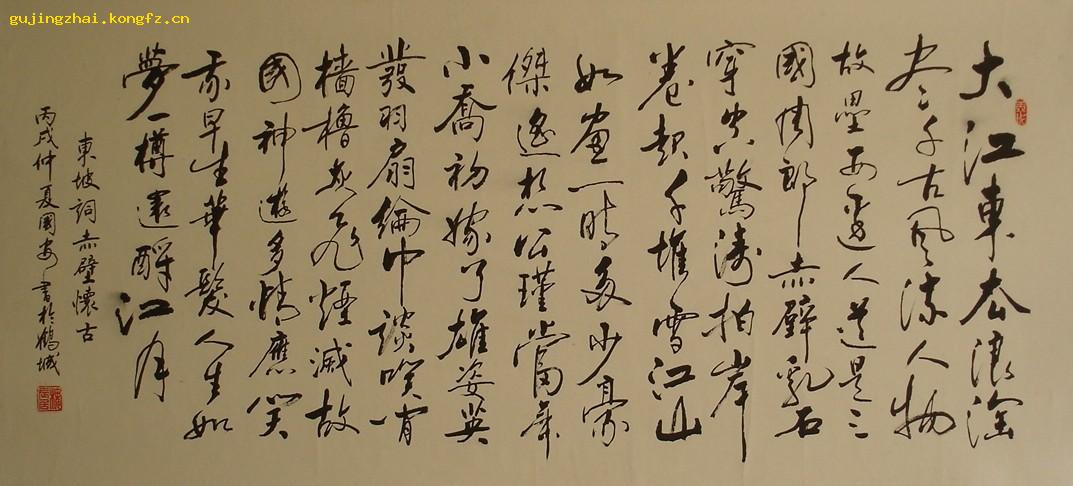 gujingzhai.kongfz.cn
大江東去浪淘
尽千古風流人物
故壘西邊人道是三
國周郎赤壁乱石
穿空驚濤拍岸
卷起千堆雪江山
如畫一時多少豪
傑遙想公瑾當年
小喬初嫁了雄姿英
發羽扇綸巾談笑間
檣櫓灰飛煙滅故
國神遊多情應笑
我早生華髮人生如
夢一樽還酹江月
東坡詞赤壁懷古
丙戌仲夏國安書於鶴城